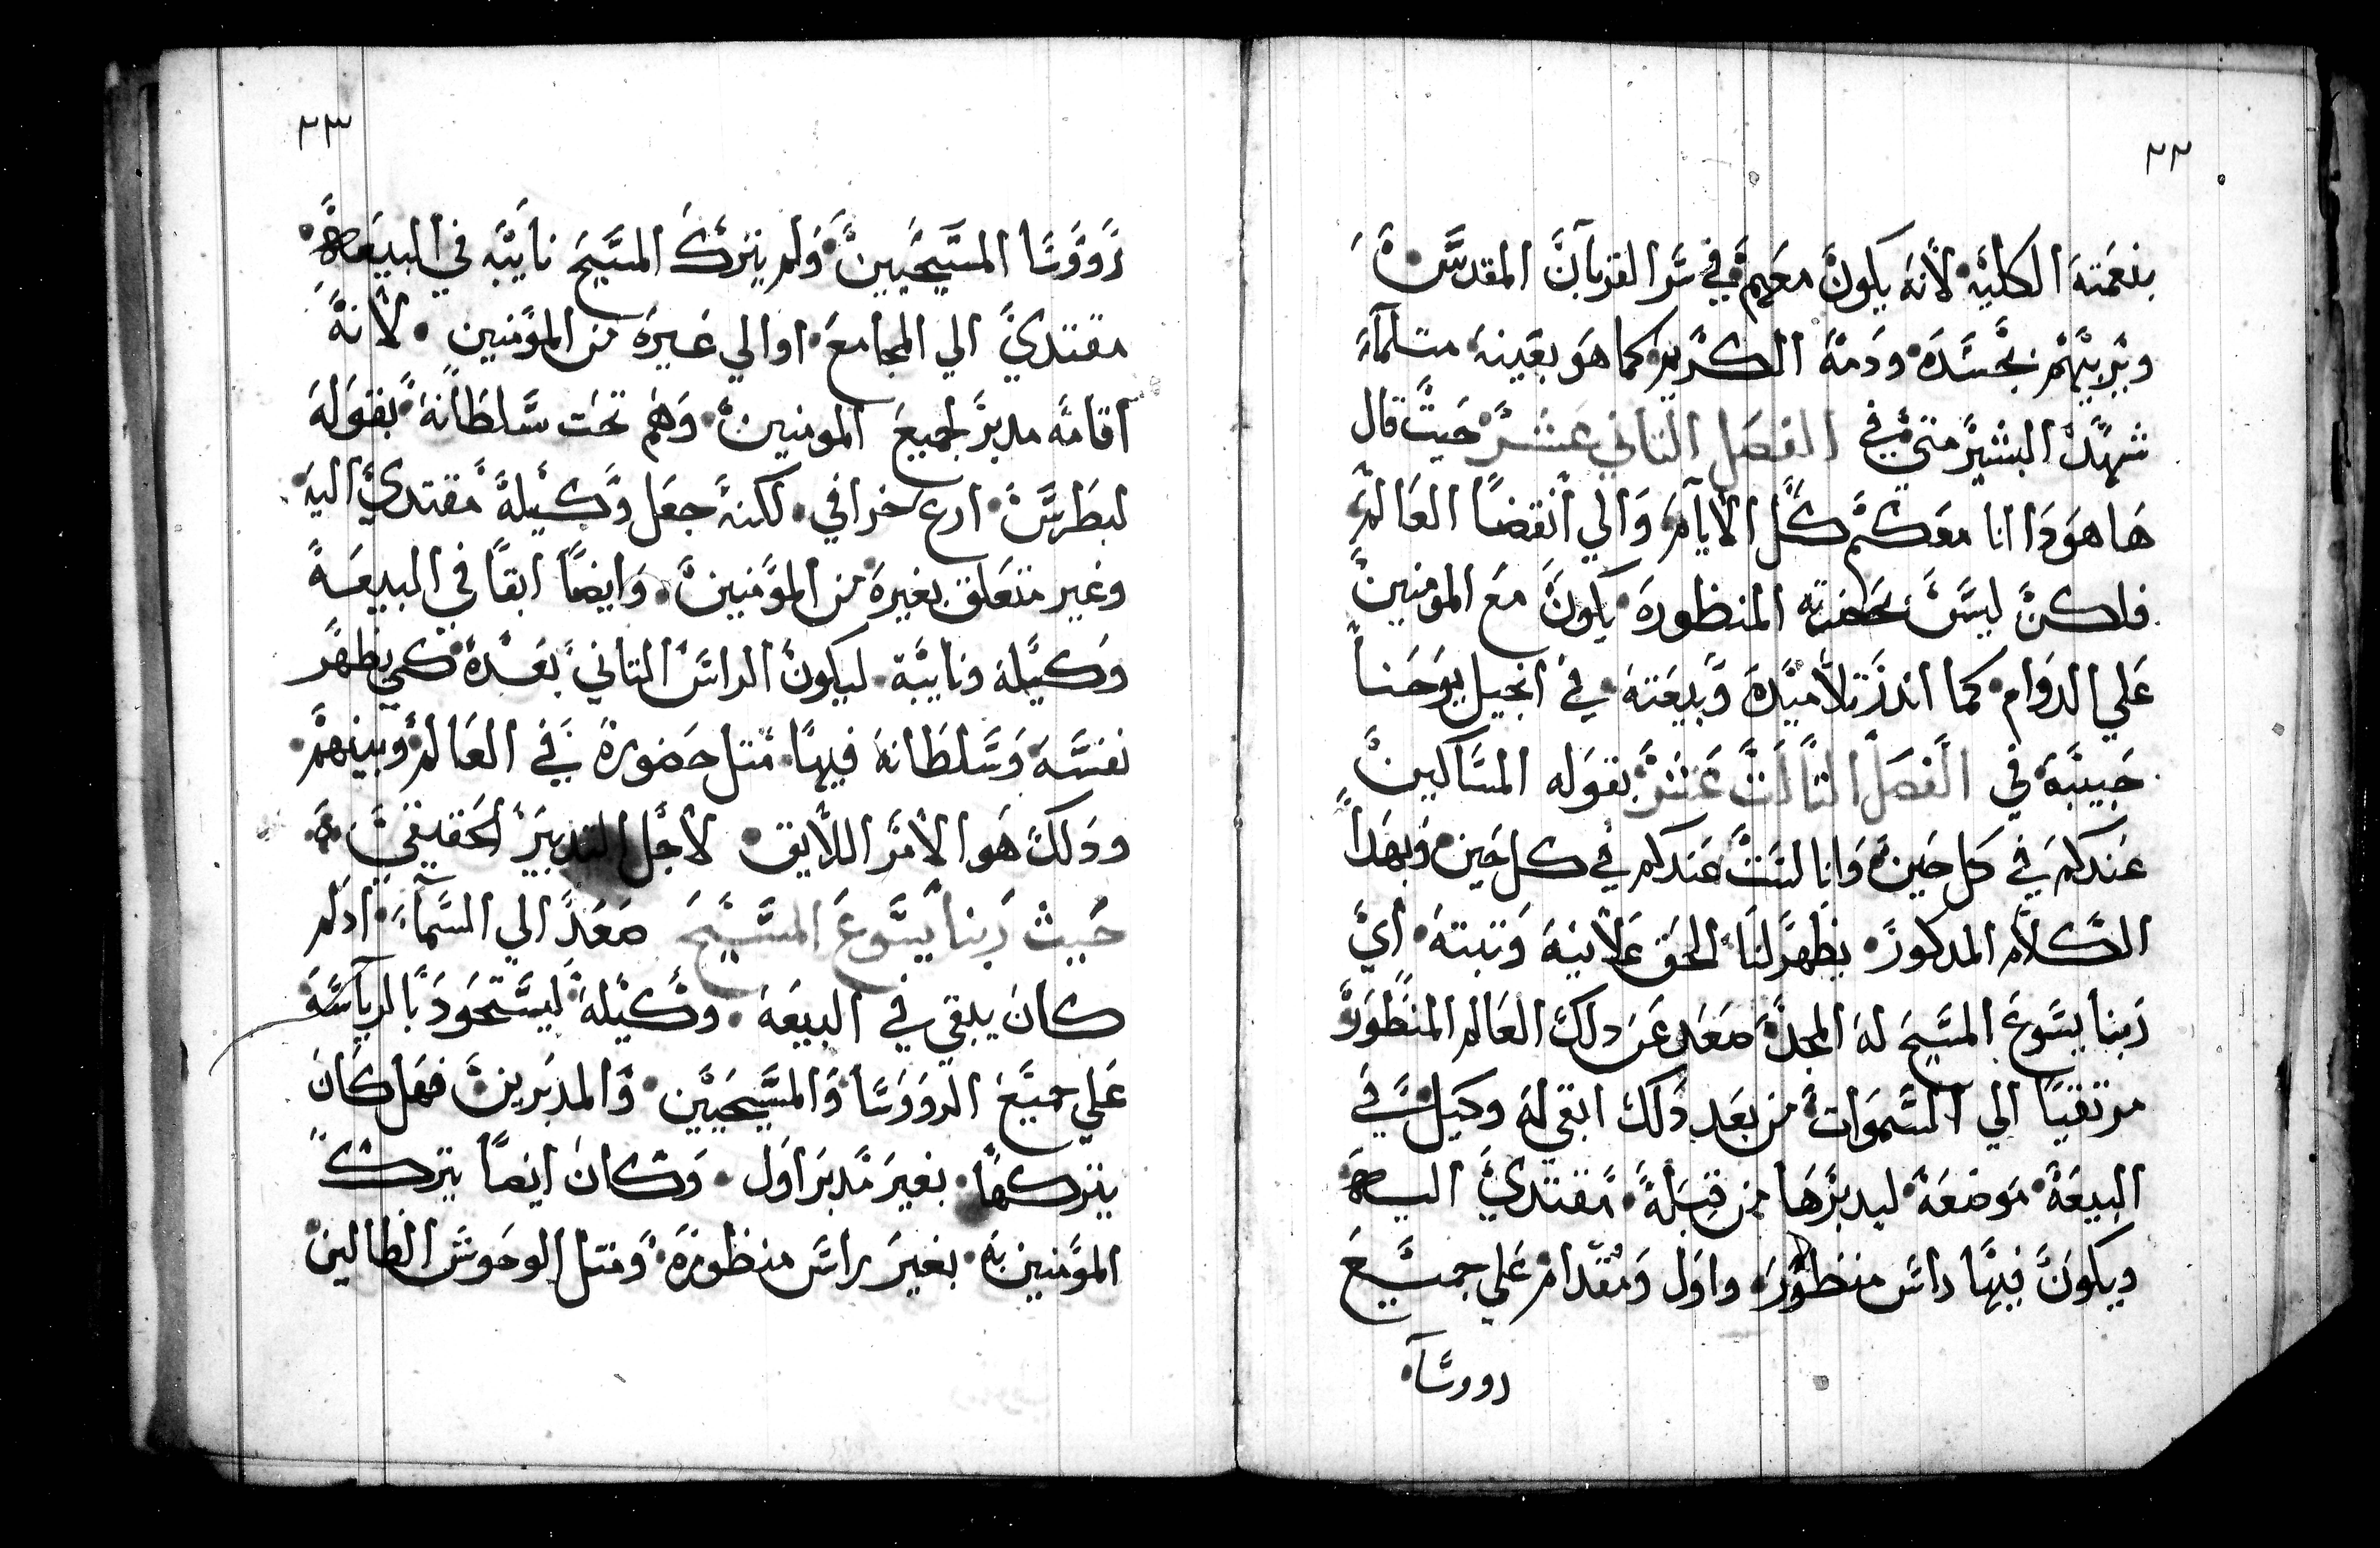 ٢٢
بنعمته الكليه لانه يكون معهم في سر القربان المقدس
ويربيهم بجسده ودمه الكريم كما هو بعينه مثلما
شهد البشير متي في الفصل الثاني عشر حيت قال
ها هودا انا معكم كل الايام والي انقضا العالم
فلكن ليس بحضرته المنظوره يكون مع المومنين
علي الدوام كما اندر تلاميده وبيعته في انجيل يوحنا
حبيبه في الفصل التالت عشر بقوله المساكين
عندكم في كل حين وانا لست عندكم في كل حين وبهدا
الكلام المدكور يظهر لنا الحق علانيه وتبته اي
ربنا يسوع المسيح له المجد صعد عن دلك العالم المنظور
مرتقيا الي السموات من بعد دلك ابقي له وكيل في
البيعة موضعه ليدبرها من قبله مقتدي اليه
ويكون فيها راس منظوره واول ومقدام علي جميع
رووسا
٢٣
رووسا المسيحيين ولم يترك المسيح نايبه في البيعه
مقتدي الي المجامع او الي غيره من المومنين لانه
اقامه مدبر لجميع المومنين وهم تحت سلطانه بقوله
لبطرس ارع خرافي لكنه جعل وكيله مقتدي اليه
وغير متعلق بغيره من المومنين وايضا ابقا في البيعة
وكيله ونايبه ليكون الراس التاني بعده كي يظهر
نفسه وسلطانه فيها متل حضوره في العالم وبينهم
ودلك هو الامر اللايق لاجل التدبير الحقيقي
حيث ربنا يسوع المسيح صعد الي السماء ادلم
كان يبقي في البيعه وكيله ليستحود بالرياسه
علي جميع الرووسا والمسيحيين والمدبرين فهل كان
يتركها بغير مدبر اول وكان ايضا يترك
المومنين به بغير راس منظوره ومتل الوحوش الضالين